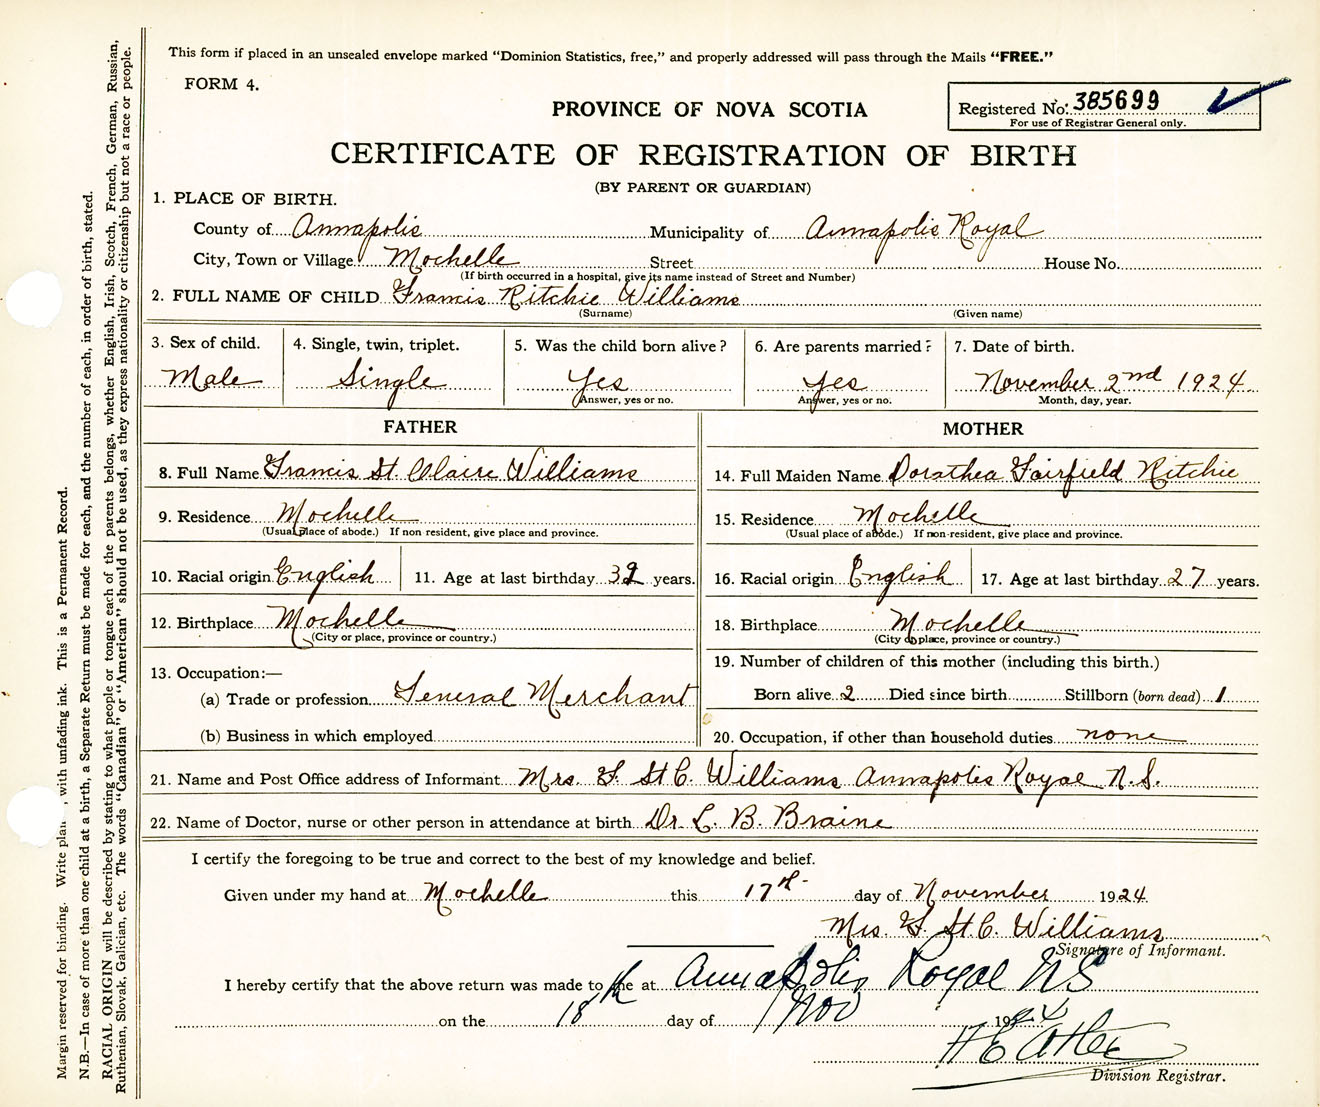 This form if placed in an unsealed envelope marked "Dominion Statistics, free," and properly addressed will pass through the Mails "FREE."
FORM 4.
PROVINCE OF NOVA SCOTIA
Registered No. 385699
For use of Registrar General only.
CERTIFICATE OF REGISTRATION OF BIRTH
(BY PARENT OR GUARDIAN)
1. PLACE OF BIRTH.
County of Annapolis Municipality of Annapolis Royal
City, Town or Village Mochelle Street House No.
(If birth occurred in a hospital, give its name instead of Street and Number)
2. FULL NAME OF CHILD Francis Ritchie Williams
(Surname) (Given name)
3. Sex of child. 4. Single, twin, triplet. 5. Was the child born alive? 6. Are parents married? 7. Date of birth.
Male Single Yes Yes November 2nd 1924
Answer, yes or no. Answer, yes or no. Month, day, year.
FATHER MOTHER
8. Full Name Francis St. Claire Williams 14. Full Maiden Name Dorathea Fairfield Ritchie
9. Residence Mochelle 15. Residence Mochelle
(Usual place of abode.) If non resident, give place and province. (Usual place of abode.) If non-resident, give place and province.
10. Racial origin English 11. Age at last birthday years. 16. Racial origin English 17. Age at last birthday 27 years.
12. Birthplace Mochelle 18. Birthplace Mochelle
(City or place, province or country.) (City or place, province or country.)
13. Occupation:— 19. Number of children of this mother (including this birth.)
(a) Trade or profession General Merchant Born alive 2 Died since birth Stillborn (born dead) 1
(b) Business in which employed 20. Occupation, if other than household duties none
21. Name and Post Office address of Informant Mrs. F. St C. Williams Annapolis Royal N.S.
22. Name of Doctor, nurse or other person in attendance at birth Dr. L. B. Braine
I certify the foregoing to be true and correct to the best of my knowledge and belief.
Given under my hand at Mochelle this 17th day of November 1924
Mrs. F. St. C. Williams
Signature of Informant.
I hereby certify that the above return was made to me at Annapolis Royal NS
on the 18th day of Nov 1924
Division Registrar.
Margin reserved for binding. Write plain, with unfading ink. This is a Permanent Record.
N.B.—In case of more than one child at a birth, a Separate Return must be made for each, and the number of each, in order of birth, stated.
RACIAL ORIGIN will be described by stating to what people or tongue each of the parents belongs, whether English, Irish, Scotch, French, German, Russian,
Ruthenian, Slovak, Galician, etc. The words "Canadian" or "American" should not be used, as they express nationality or citizenship but not a race or people.